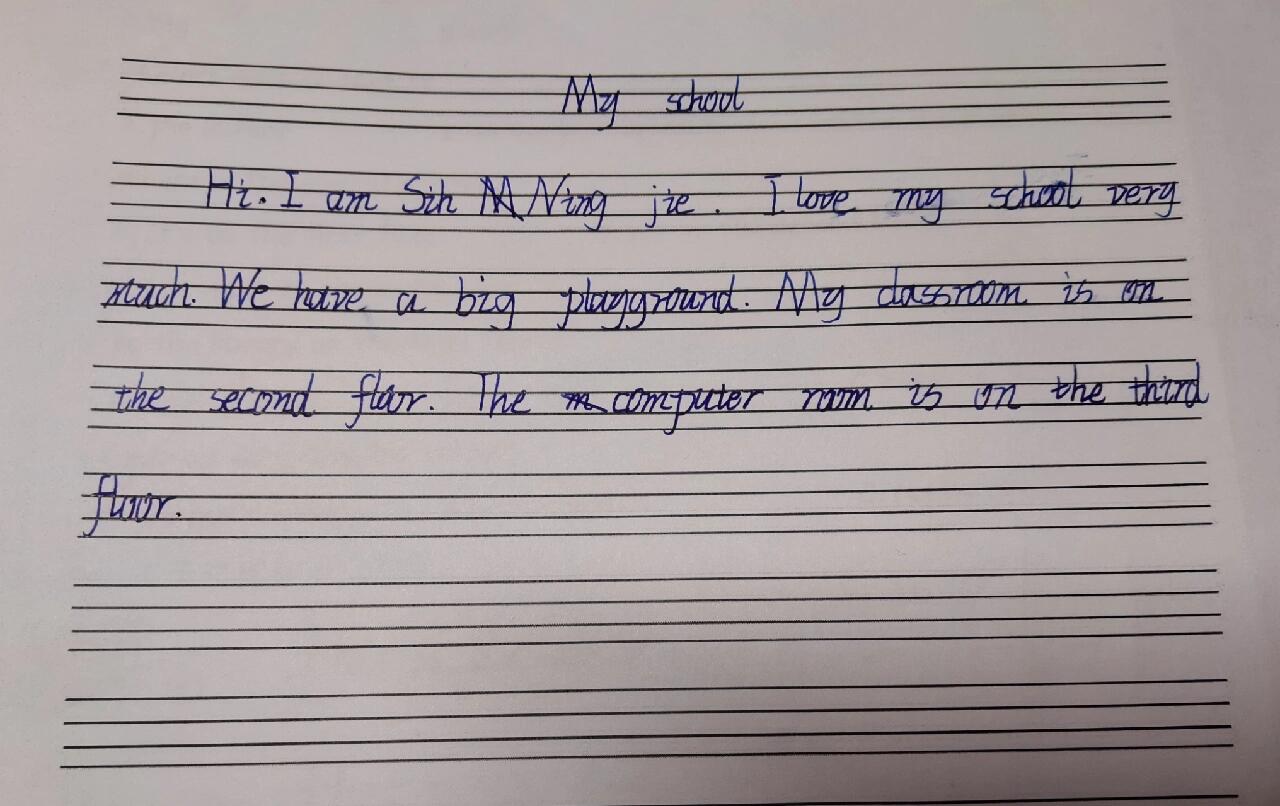 My school
Hi. I am Sih Ning jie. I love my school very
much. We have a big playground. My classroom is on
the second floor. The computer room is on the third
floor.